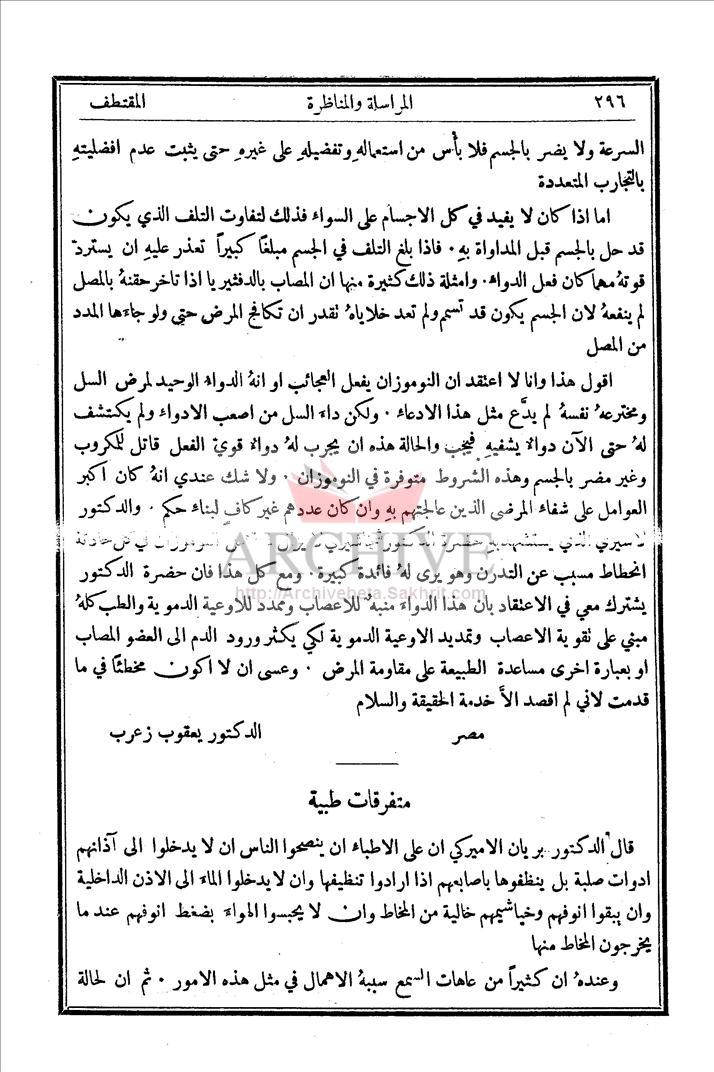 ٢٩٦ المراسلة والمناظرة المقتطف
السرعة ولا يضر بالجسم فلا بأس من استعماله وتفضيلهِ على غيرهِ حتى يثبت عدم افضليتهِ
بالتجارب المتعددة
اما اذا كان لا يفيد في كل الاجسام على السواء فذلك لتفاوت التلف الذي يكون
قد حل بالجسم قبل المداواة بهِ . فاذا بلغ التلف في الجسم مبلغًا كبيراً تعذر عليهِ ان يسترد
قوتهُ مهما كان فعل الدواء . وامثلة ذلك كثيرة منها ان المصاب بالدفثيريا اذا تاخر حقنهُ بالمصل
لم ينفعهُ لان الجسم يكون قد تسمم ولم تعد خلاياهُ تقدر ان تكافح المرض حتى ولو جاءها المدد
من المصل
اقول هذا وانا لا اعتقد ان النوموزان يفعل العجائب او انهُ الدواء الوحيد لمرض السل
ومخترعهُ نفسهُ لم يدَّع مثل هذا الادعاء . ولكن داء السل من اصعب الادواء ولم يكتشف
لهُ حتى الآن دواء يشفيهِ فيجب والحالة هذه ان يجرب لهُ دواء قوي الفعل قاتل للمكروب
وغير مضر بالجسم وهذه الشروط متوفرة في النوموزان . ولا شك عندي انهُ كان اكبر
العوامل على شفاء المرضى الذين عالجتهم بهِ وان كان عددهم غير كافٍ لبناء حكم . والدكتور
لاسيري الذي يستشهد بهِ حضرة الدكتور النوموزان في كل حادثة
انحطاط مسبب عن التدرن وهو يرى لهُ فائدة كبيرة . ومع كل هذا فان حضرة الدكتور
يشترك معي في الاعتقاد بان هذا الدواء منبهٌ للاعصاب وممدد للاوعية الدموية والطب كلهُ
مبني على تقوية الاعصاب وتمديد الاوعية الدموية لكي يكثر ورود الدم الى العضو المصاب
او بعبارة اخرى مساعدة الطبيعة على مقاومة المرض . وعسى ان لا اكون مخطئًا في ما
قدمت لاني لم اقصد الاَّ خدمة الحقيقة والسلام
مصر الدكتور يعقوب زعرب
متفرقات طبية
قال الدكتور بريان الاميركي ان على الاطباء ان ينصحوا الناس ان لا يدخلوا الى آذانهم
ادوات صلبة بل ينظفوها باصابعهم اذا ارادوا تنظيفها وان لا يدخلوا الماء الى الاذن الداخلية
وان يبقوا انوفهم وخياشيمهم خالية من المخاط وان لا يحبسوا الهواء بضغط انوفهم عند ما
يخرجون المخاط منها
وعندهُ ان كثيراً من عاهات السمع سببهُ الاهمال في مثل هذه الامور . ثم ان لحالة
ARCHIVE
http://Archivebeta.Sakhrit.com